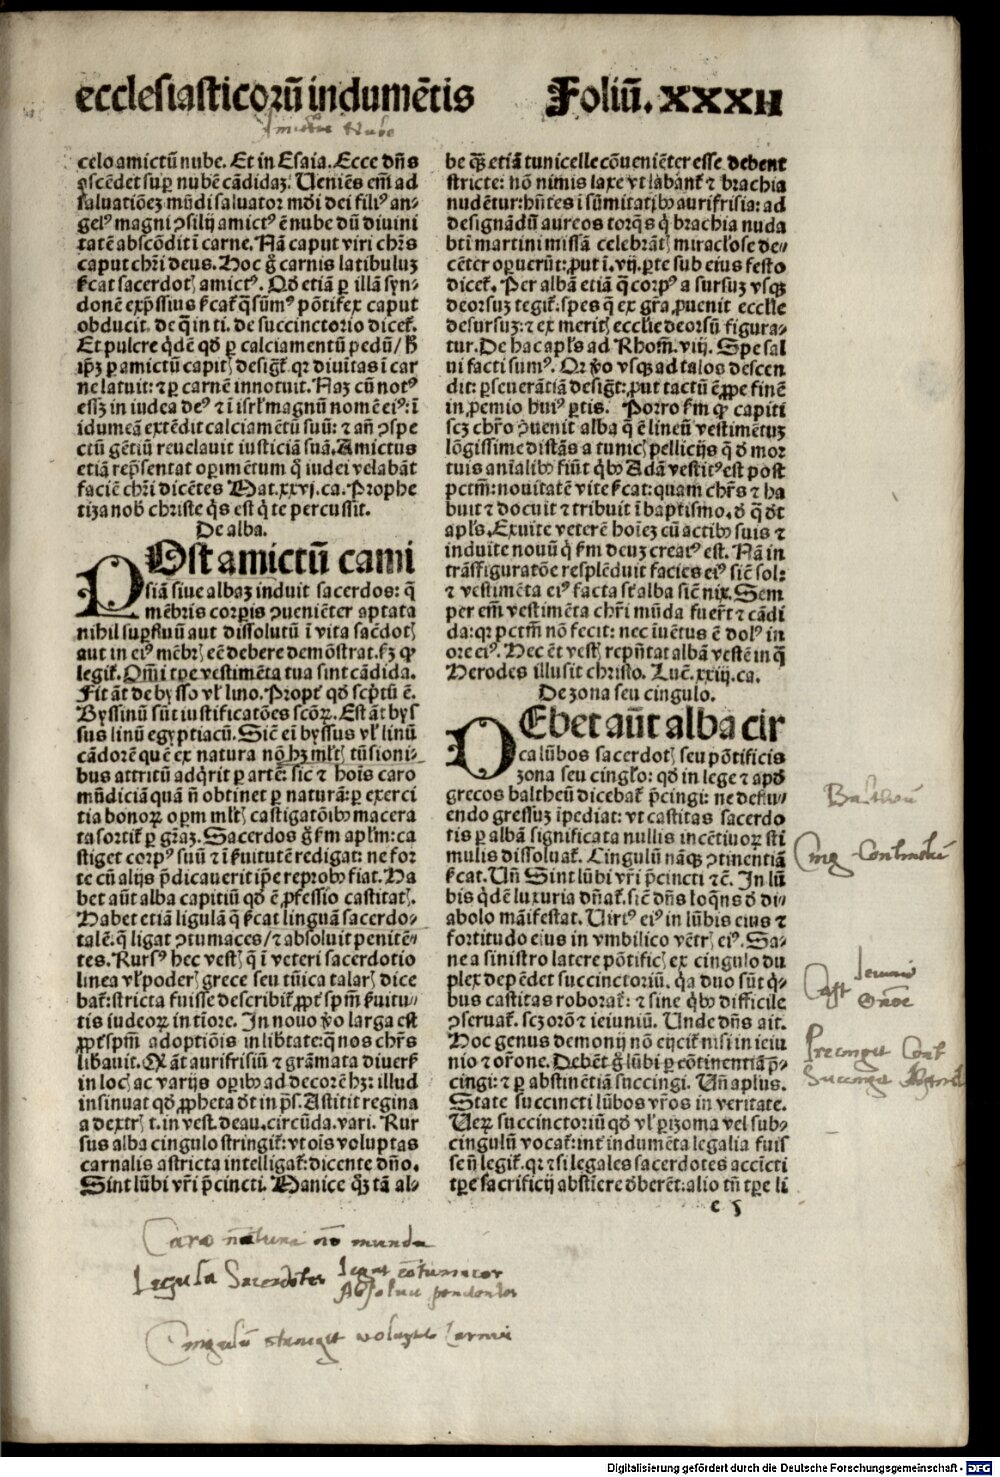 ecclesiasticorū indumētis Foliū. XXXII
Amictus Nube
celo amictū nube. Et in Esaia. Ecce dn̄s
ꝯscēdet suꝑ nubē cādidaꝫ. Ueniēs em̄ ad
saluatiōeꝫ mūdi saluator mūdi dei filiꝰ an-
gelꝰ magni ꝯsilij amictꝰ ē nube dū diuini
tatē abscōdit ī carne. Nā caput viri chr̄s
caput chr̄i deus. Hoc g̊ carnis latibuluꝫ
ẜcat sacerdotꝭ amictꝰ. Qd̄ etiā ꝑ illā syn-
donē exp̄ssius ẜcat̄ q̄ sūmꝰ pōtifex caput
obducit. de q̄ in ti. de succinctorio dicet̄.
Et pulcre q̇dē qd̄ ꝑ calciamentū pedū/ h̄
ip̄ꝫ ꝑ amictū capitꝭ desigt̄. qꝛ diuitas ī car
ne latuit: ⁊ ꝑ carnē innotuit. Naꝫ cū notꝰ
essꝫ in iudea deꝰ ⁊ ī isrl̄ magnū nomē eiꝰ: ī
idumeā extēdit calciamētū suū: ⁊ an̄ ꝯspe
ctū gētiū reuelauit iusticiā suā. Amictus
etiā rep̄sentat oꝑimētum q̇ iudei velabāt
faciē chr̄i dicētes Mat. xxvj. ca. Prophe
tiza nob̄ christe q̇s est q̇ te percussit.
De alba.
POst amictū cami
siā siue albaꝫ induit sacerdos: q̄
mēbris corꝑis ꝯueniēter aptata
nihil suꝑfluū aut dissolutū ī vita sac̄dotꝭ
aut in eiꝰ mēbrꝭ eē debere demōstrat. ẜꝫ ꝙ
legit̄. Om̄i tꝑe vestimēta tua sint cādida.
Fit āt de bysso vl̄ lino. Propt̄ qd̄ scp̄tū ē.
Byssinū sūt iustificatōes scōꝝ. Est āt bys
sus linū egyptiacū. Sic̄ ei byssus vl̄ linū
cādorē quē ex natura nō hꝫ ml̄tꝭ tūsioni-
bus attritū adq̇rit ꝑ artē: sic ⁊ hois caro
mūdiciā quā n̄ obtinet ꝑ naturā: ꝑ exerci
tia bonoꝝ oꝑm ml̄tꝭ castigatōibꝰ macera
ta sortit̄ ꝑ gr̄aꝫ. Sacerdos g̊ ẜm apl̄m: ca
stiget corpꝰ suū ⁊ ī ẜuitutē redigat: ne for
te cū alijs p̄dicauerit ip̄e reprobꝰ fiat. Ha
bet aūt alba capitiū qd̄ ē ꝓfessio castitatꝭ.
Habet etiā ligulā q̄ ẜcat linguā sacerdo-
talē. q̄ ligat ꝯtumaces/ ⁊ absoluit penitē-
tes. Rursꝰ hec vestꝭ q̄ ī veteri sacerdotio
linea vl̄ poderꝭ grece seu tūica talarꝭ dice
bat̄: stricta fuisse describit̄ ꝓpt̄ spm̄ ẜuitu-
tis iudeoꝝ in tīore. In nouo v̊o larga est
ꝓpt̄ spm̄ adoptiōis in lib̄tate: q̄ nos chr̄s
libauit. Qꝛ āt aurifrisiū ⁊ grāmata diuersꝭ
in locꝭ ac varijs oꝑibꝰ ad decorē hꝫ: illud
insinuat qd̄ ꝓpheta dt̄ in ps̄. Astitit regina
a dextrꝭ t. in vest. deau. circūda. vari. Rur
sus alba cingulo stringit̄: vt ois voluptas
carnalis astricta intelligat̄: dicente dn̄o.
Sint lūbi vr̄i p̄cincti. Manice q̄ꝫ tā al-
be q̄ꝫ etiā tunicelle cōueniēter esse debent
stricte: nō nimis laxe vt labant̄ ⁊ brachia
nudētur: hn̄tes ī sūmitatibꝰ aurifrisia: ad
designādū aureos torq̄s q̇ brachia nuda
bt̄i martini missā celebrātꝭ miracl̄ose de-
cēter oꝑuerūt: ꝓut ī. vij. ꝑte sub eius festo
dicet̄. Per albā etiā q̄ corpꝰ a sursuꝫ vsqꝫ
deorsuꝫ tegit̄: spes q̄ ex gr̄a ꝓuenit eccl̄ie
desursuꝫ: ⁊ ex meritꝭ eccl̄ie deorsū figura-
tur. De hac apl̄s ad Rhom̄. viij. Spe sal
ui facti sumꝰ. Qꝛ v̊o vsqꝫ ad talos descen
dit: ꝑseuerātiā desigt̄: ꝓut tactū ē ꝓpe finē
in ꝓemio huiꝰ ꝑtis. Porro ẜm ꝙ capiti
scꝫ chr̄o ꝯuenit alba q̄ ē lineū vestimētuꝫ
lōgissime distās a tunicꝭ pellicijs q̄ d̄ mor
tuis aīalibꝰ fiūt q̇bꝰ Adā vestitꝰ est post
pctm̄: nouitatē vite ẜcat: quam chr̄s ⁊ ha
buit ⁊ docuit ⁊ tribuit ī baptismo. d̄ q̄ dt̄
apl̄s. Exuite veterē hoieꝫ cū actibꝰ suis ⁊
induite nouū q̇ ẜm deuꝫ creatꝰ est. Nā in
trāsfiguratōe resplēduit facies eiꝰ sic̄ sol:
⁊ vestimēta eiꝰ facta sūt alba sic̄ nix. Sem
per em̄ vestimēta chr̄i mūda fuer̄t ⁊ cādi
da: qꝛ pctm̄ nō fecit: nec īuētus ē dolꝰ in
ore eiꝰ. Hec ēt vestꝭ rep̄ntat albā vestē in q̄
Herodes illusit christo. Luc̄. xxiij. ca.
De zona seu cingulo.
DEbet aūt alba cir
ca lūbos sacerdotꝭ seu pōtificis
zona seu cingl̄o: qd̄ in lege ⁊ apd̄
grecos baltheū dicebat̄ p̄cingi: ne deflu-
endo gressuꝫ īpediat: vt castitas sacerdo
tis ꝑ albā significata nullis incētiuoꝝ sti
mulis dissoluat̄. Cingulū nāqꝫ ꝯtinentiā
ẜcat. Un̄ Sint lūbi vr̄i p̄cincti ⁊ c̄. In lū
bis q̇dē luxuria dn̄at̄. sic̄ dn̄s loq̄ns d̄ di-
abolo māifestat. Uirtꝰ eiꝰ in lūbis eius ⁊
fortitudo eius in vmbilico vētrꝭ eiꝰ. Sa-
ne a sinistro latere pōtificꝭ ex cingulo du
plex depēdet succinctoriū. q̇a duo sūt q̇-
bus castitas roborat̄: ⁊ sine q̇bꝰ difficile
ꝯseruat̄. scꝫ orō ⁊ ieiuniū. Unde dn̄s ait.
Hoc genus demonij nō eijcit̄ nisi in ieiu
nio ⁊ or̄one. Debēt g̊ lūbi ꝑ cōtinentiā p̄-
cingi: ⁊ ꝑ abstinētiā succingi. Un̄ aplus.
State succincti lūbos vr̄os in veritate.
Ueꝝ succinctoriū qd̄ vl̄ ꝑizoma vel sub-
cingulū vocat̄: int̄ indumēta legalia fuis
se n̄ legit̄. qꝛ ⁊ si legales sacerdotes accīcti
tꝑe sacrificij abstiere dēberēt: alio tn̄ tꝑe li
e 5
Cing Continentiā
Cast Ieiunio
Orōne
Precingit Cont
Succingit
Caro natura nō munda
Legula Sacerdotes Ligat cōtumacos
Absoluit penitentes
Cingulū stringit voluptas Carnis
Digitalisierung gefördert durch die Deutsche Forschungsgemeinschaft - DFG